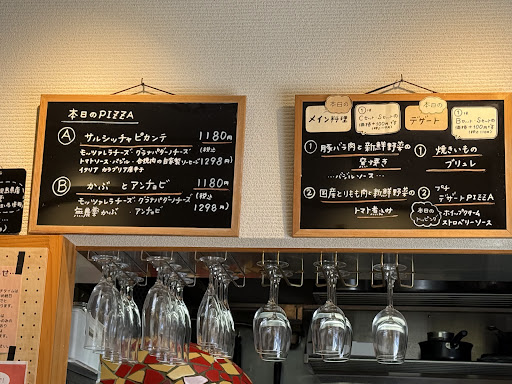 本日のPIZZA
Ⓐ サルシッチャ ピカンテ 1180円
モッツァレラチーズ・グラナパダーノチーズ (税込
トマトソース・バジル・自家製ソーセージ 1298円)
イタリア カラブリア唐辛子
Ⓑ かぶ と アンチョビ 1180円
モッツァレラチーズ・グラナパダーノチーズ (税込
無農薬かぶ ・アンチョビ 1298円)
本日の
メイン料理
① 豚バラ肉と新鮮野菜の
窯焼き
…バジルソース…
② 国産とりもも肉と新鮮野菜の
トマト煮込み
本日の
デザート
① 焼きいもの
ブリュレ
②
デザートPIZZA
本日の
トッピング
ホイップクリーム
ストロベリーソース